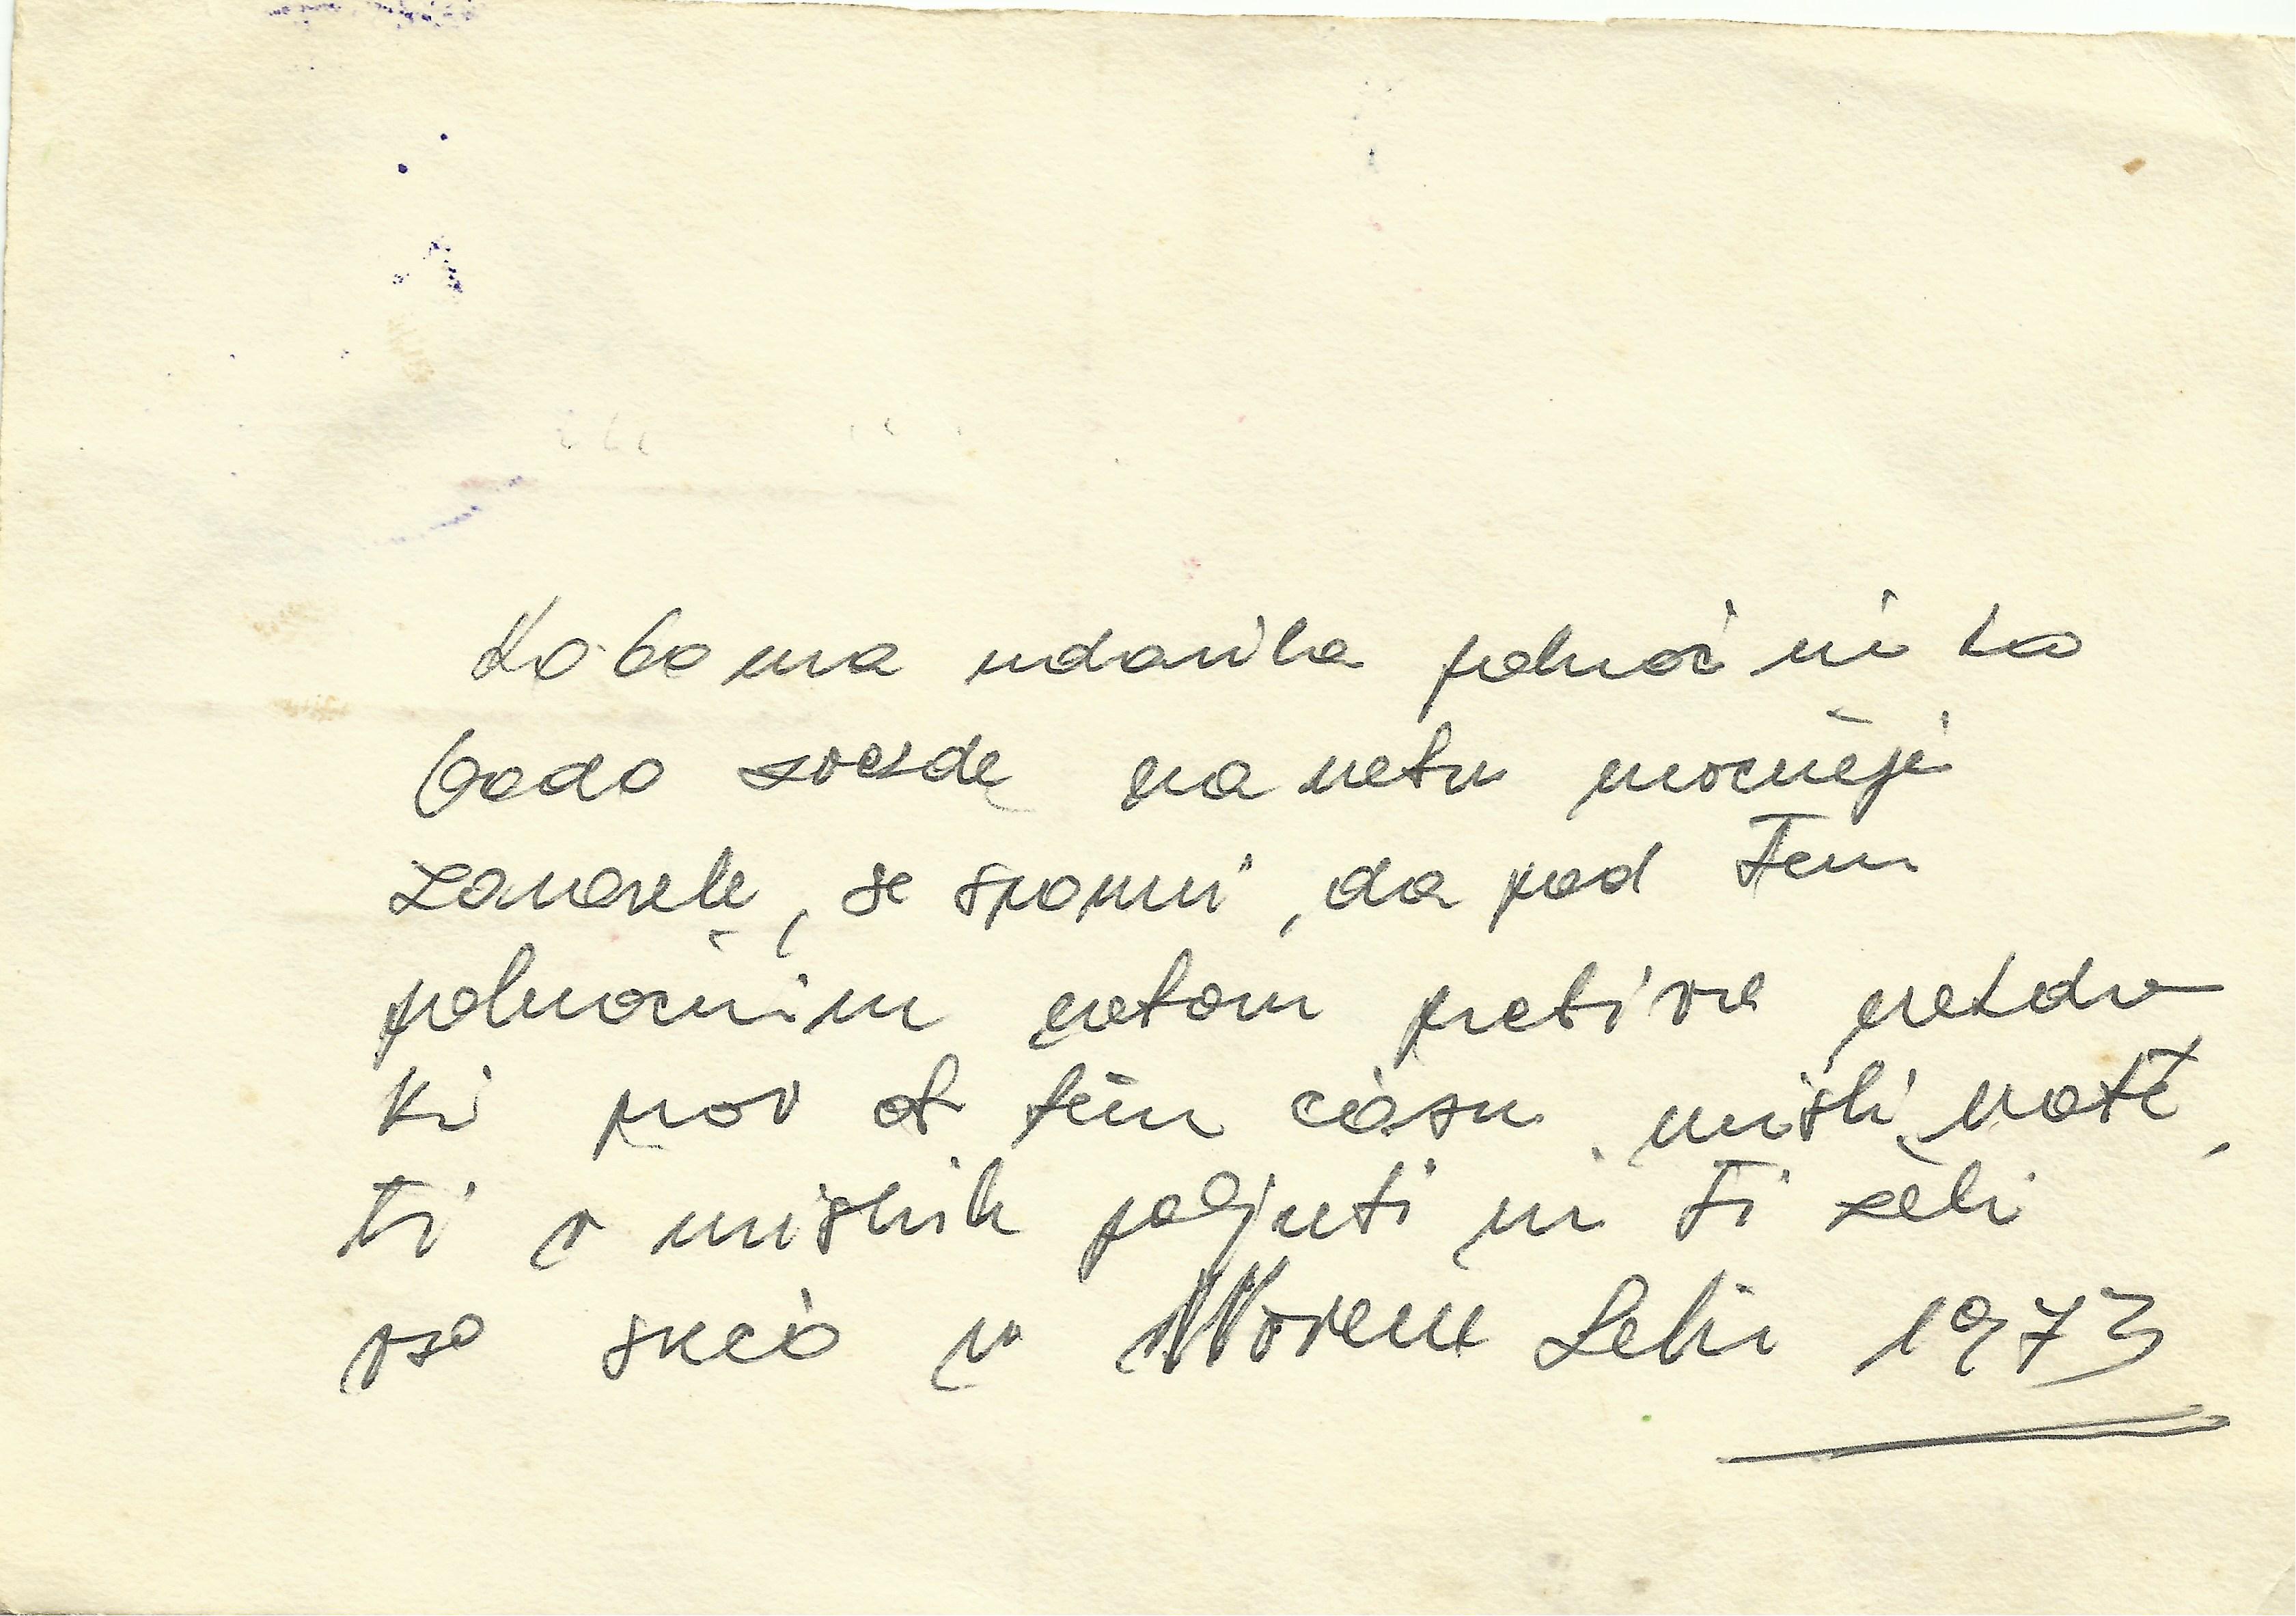 Ko bo ura udarila polnoč in ko
bodo zvezde na nebu močneje
zamrele, se spomni, da pod tem
polnočnim nebom prebiva nekdo
ki prav ob tem času misli nate,
ti v mislih poljubi in ti želi
vso srečo v Novem Letu 1973